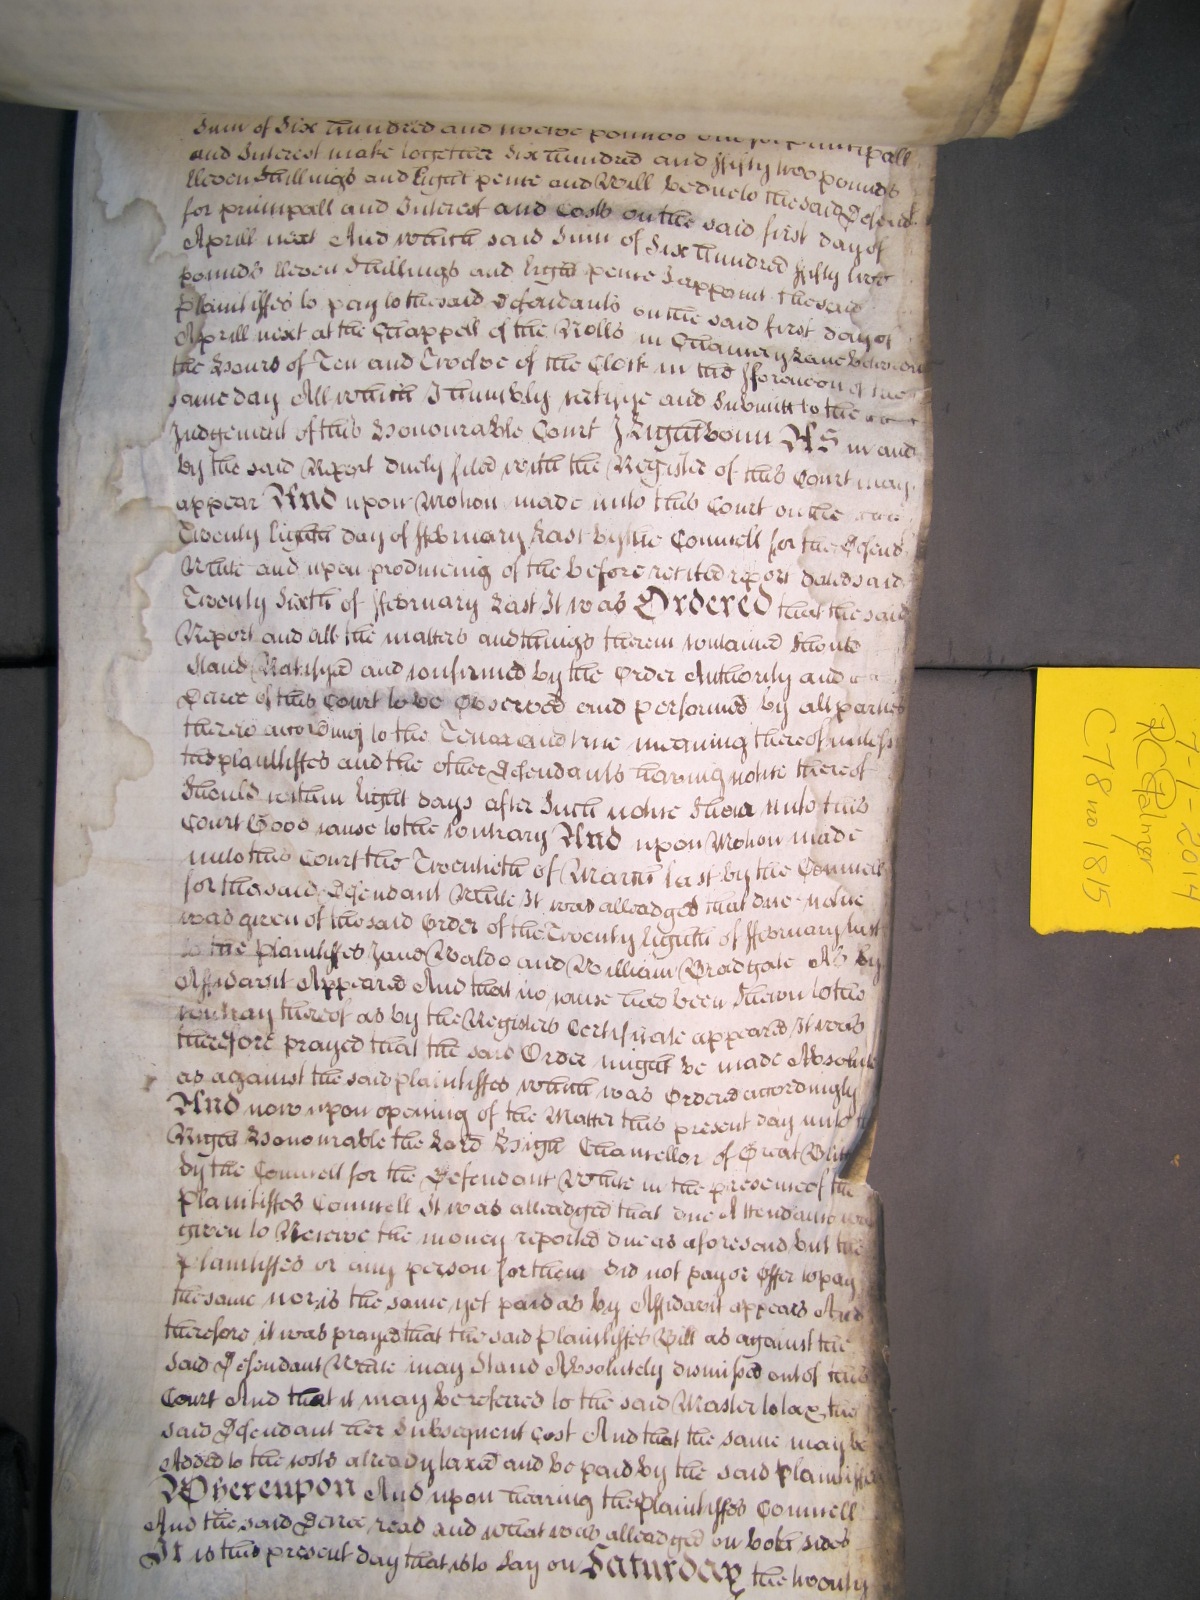 Sum of Six Hundred and twelve pounds principall
and Interest make together Six Hundred and ffifty two pounds
Eleven Shillings and Eight pence and Will be due to the said Defend
for principall and Interest and Costs on the said first day of
Aprill next And which said Sum of Six Hundred ffifty two
pounds Eleven Shillings and Eight pence I appoint the said
Plaintiffes to pay to the said Defendants on the said first day of
Aprill next at the Chappell of the Rolls in Chancery Lane between
the Hours of Ten and Twelve of the Clock in the fforenoon of the
same day All which I humbly certifye and Submitt to the
Judgement of this Honourable Court J Lightboun AS in and
by the said Report duely filed with the Register of this Court may
appear And upon Motion made unto this Court on the
Twenty Eighth day of ffebruary Last by the Councell for the Defend
White and upon producing of the before recited report dated said
Twenty Sixth of ffebruary Last It was Ordered that the said
Report and all the matters and things therein contained Should
Stand Ratifyed and confirmed by the Order Authority and
Decree of this Court to be Observed and performed by all parties
thereto according to the Tenor and true meaning thereof unless
the plaintiffes and the other Defendants having notice thereof
Should within Eight days after Such notice Shew unto this
Court Good cause to the contrary And upon Motion made
unto this Court the Twentieth of March last by the Councell
for the said Defendant White It was alleadged that due notice
was given of the said Order of the Twenty Eighth of ffebruary last
to the plaintiffes Jane Waldo and William Broadgate As by
Affidavit Appeared And that no cause had been Shewn to the
contrary thereof as by the Registers Certificate appeared It was
therefore prayed that the said Order might be made Absolute
as against the said plaintiffes which was Ordered accordingly
And now upon opening of the Matter this present day unto
Right Honourable the Lord High Chancellor of Great Brit
by the Councell for the Defendant White in the presence of the
Plaintiffes Councell It was alleadged that due Attendance was
given to Receive the money reported due as aforesaid but the
Plaintiffes or any person for them did not pay or Offer to pay
the same nor is the same yet paid as by Affidavit appears And
therefore it was prayed that the said Plaintiffes Bill as against the
said Defendant White may Stand Absolutely dismissed out of this
Court And that it may be referred to the said Master to tax the
said Defendant her Subsequent Cost And that the same may be
Added to the costs already taxed and be paid by the said Plaintiffes
Whereupon And upon hearing the Plaintiffes Councell
And the said Decree read and what was alleadged on both sides
It is this present day that is to Say on Saturday the twenty
7-1-2014
RCPalmer
C78 no 1815